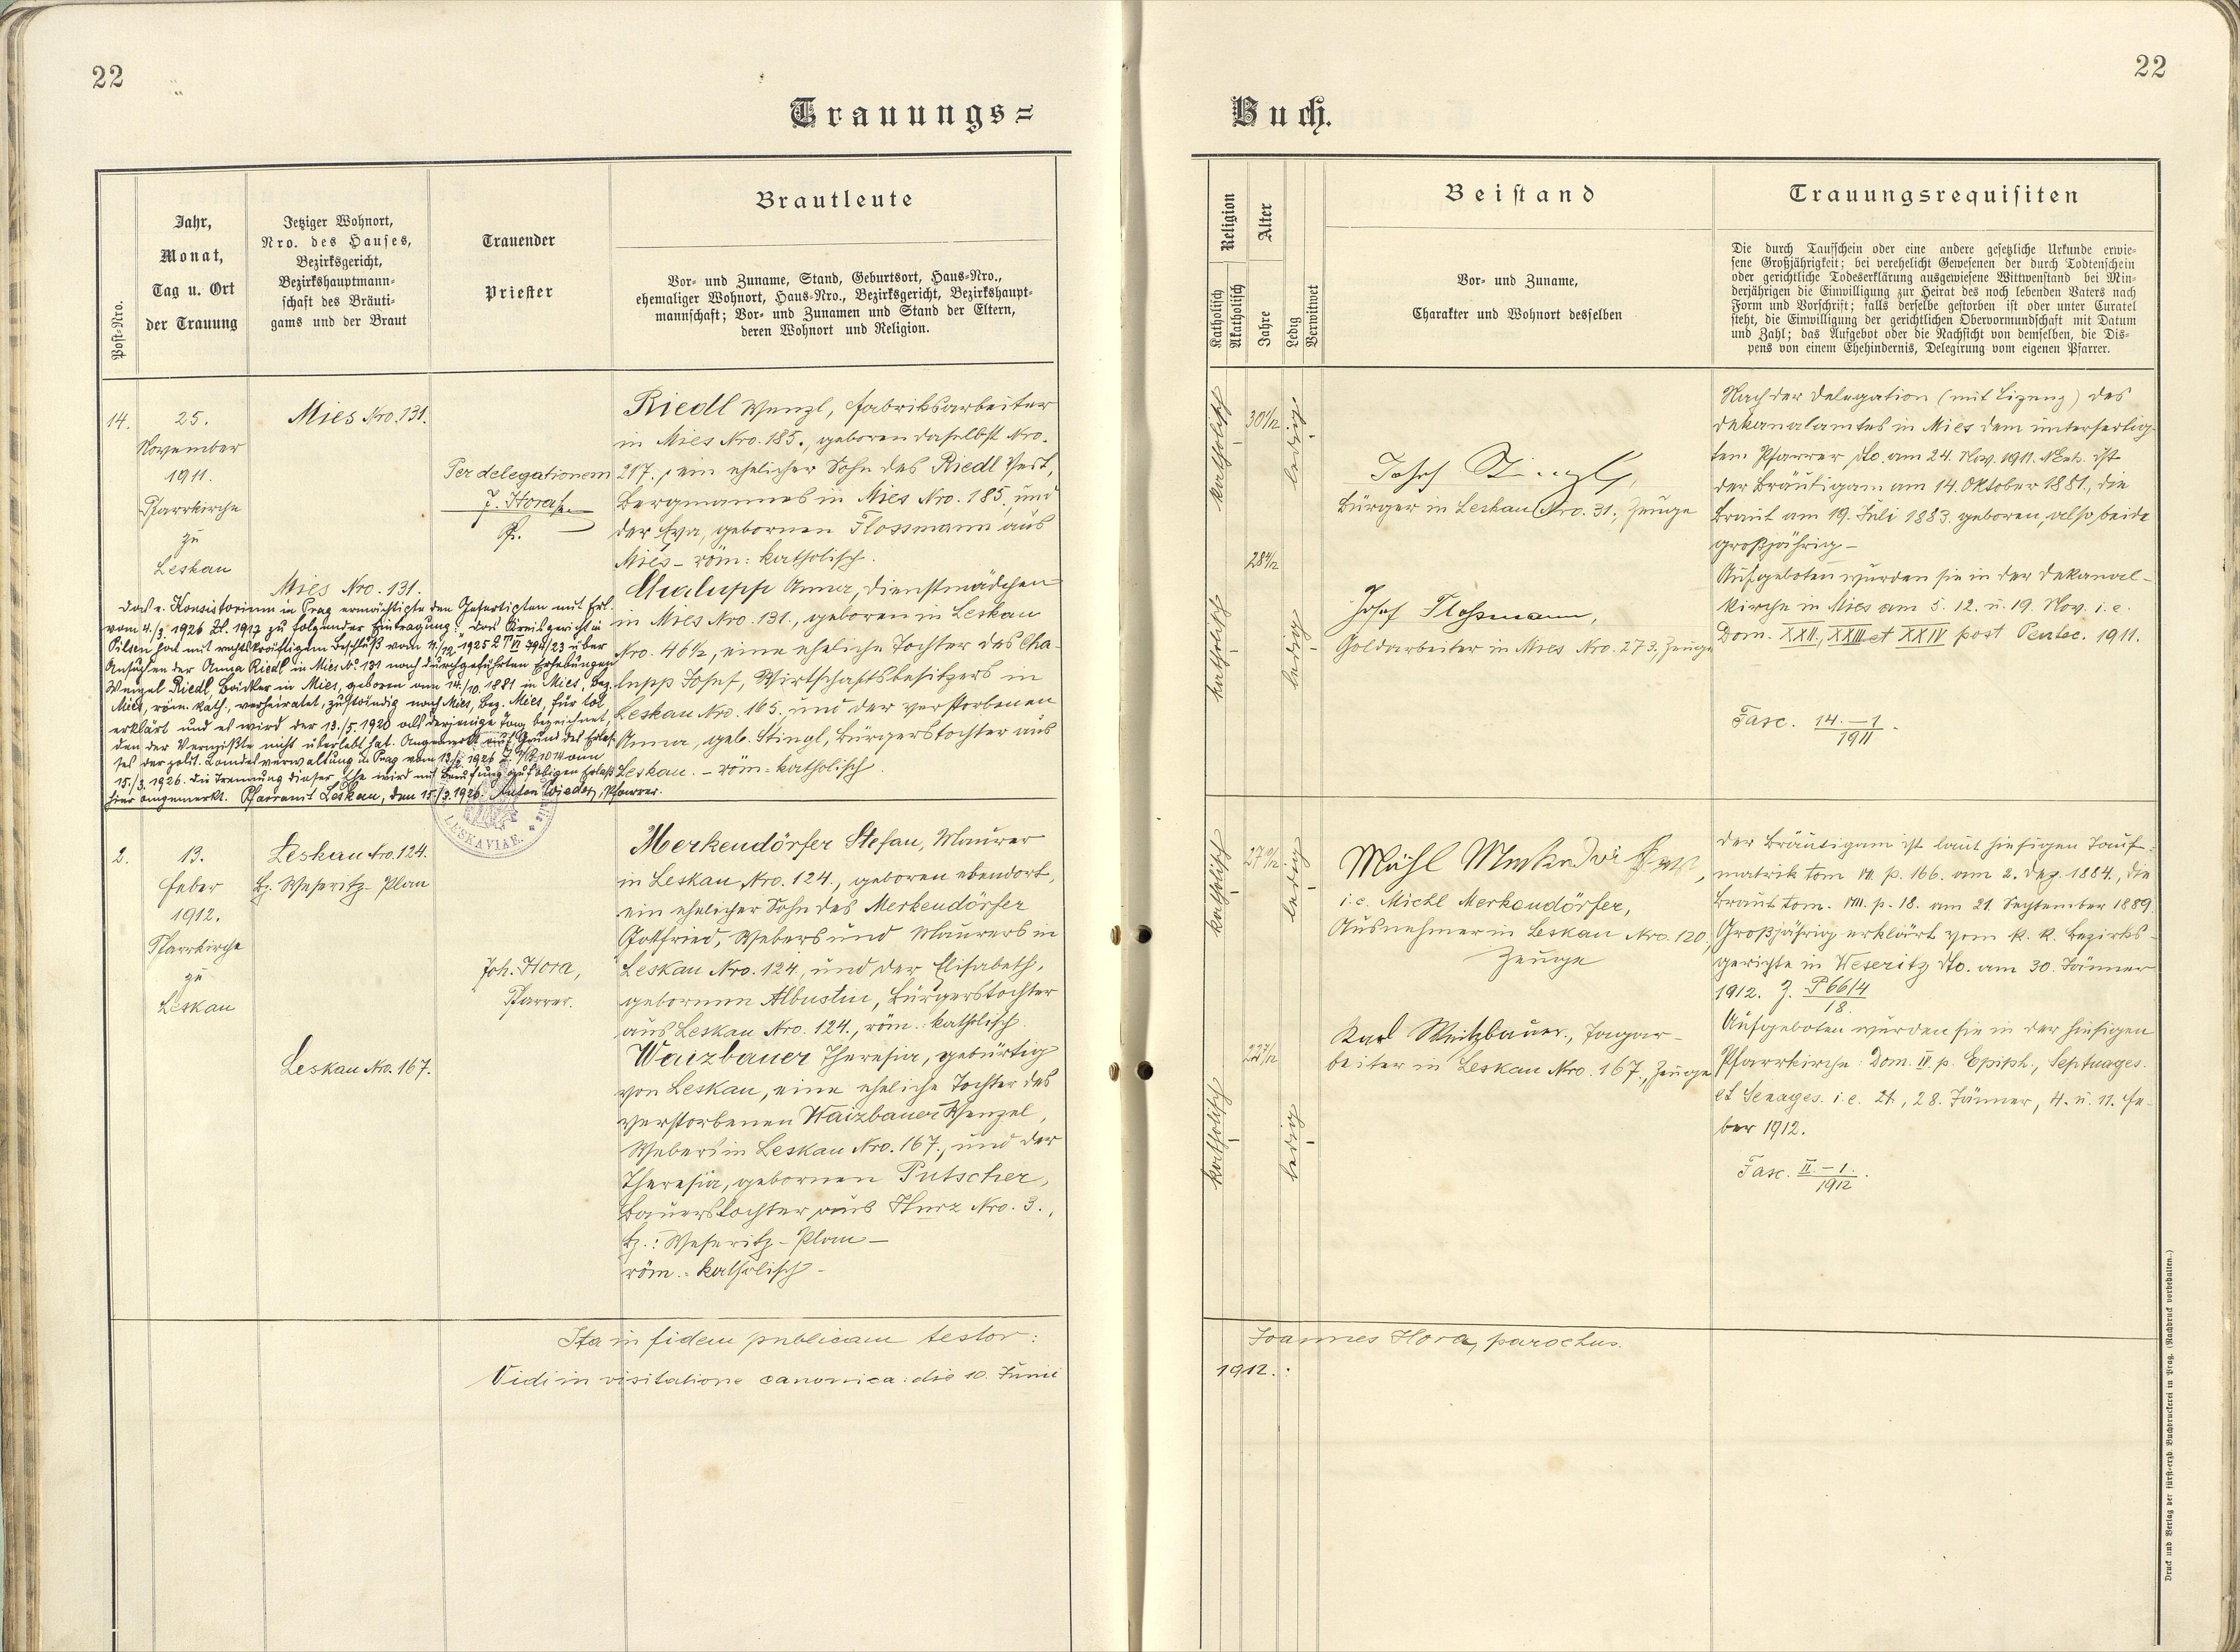 22
22
Trauungs=
Buch.
Post-Nro.
Jahr,
Monat,
Tag u. Ort
der Trauung
Jetziger Wohnort,
Nro. des Hauses,
Bezirksgericht,
Bezirkshauptmann-
schaft des Bräuti-
gams und der Braut
Trauender
Priester
Brautleute
Vor- und Zuname, Stand, Geburtsort, Haus-Nro.,
ehemaliger Wohnort, Haus-Nro., Bezirksgericht, Bezirkshaupt-
mannschaft; Vor- und Zunamen und Stand der Eltern,
deren Wohnort und Religion.
Religion
Katholisch
Akatholisch
Alter
Jahre
Ledig
Verwitwet
Beistand
Vor- und Zuname,
Charakter und Wohnort desselben
Trauungsrequisiten
Die durch Taufschein oder eine andere gesetzliche Urkunde erwie-
sene Großjährigkeit; bei verehelicht Gewesenen der durch Todtenschein
oder gerichtliche Todeserklärung ausgewiesene Wittwenstand bei Min-
derjährigen die Einwilligung zur Heirat des noch lebenden Vaters nach
Form und Vorschrift; falls derselbe gestorben ist oder unter Curatel
steht, die Einwilligung der gerichtlichen Obervormundschaft mit Datum
und Zahl; das Aufgebot oder die Nachsicht von demselben, die Dis-
pens von einem Ehehindernis, Delegirung vom eigenen Pfarrer.
14.
25.
November
1911.
Pfarrkirche
zu
Leskau
Mies Nro. 131.
Mies Nro. 131.
Per delegationem
J. Hora
Pf.
Riedl Wenzl, Fabriksarbeiter
in Mies Nro. 185., geboren daselbst Nro.
217., ein ehelicher Sohn des Riedl
Bergmannes in Mies Nro. 185., und
der Eva, gebornen Flossmann aus
Mies – röm: katholisch.
Chalupp Anna, Dienstmädchen
in Mies Nro. 131., geboren in Leskau
Nro. 46½, eine eheliche Tochter des Cha-
lupp Josef, Wirtschaftsbesitzers in
Leskau Nro. 165., und der verstorbenen
Anna, geb. Stingl, Bürgerstochter aus
Leskau. – röm: katholisch
Das e. Konsistorium in Prag ermächtigte den Gefertigten mit Erl.
vom 4./3. 1926 Zl. 1917 zu folgender Eintragung: "Das Kreisgericht in
Pilsen hat mit rechtskräftigem Beschluß vom 4./12. 1925 über
Ansuchen der Anna Riedl in Mies N° 131 nach durchgeführten Erhebungen
Wenzel Riedl, Bäcker in Mies, geboren am 14./10. 1881 in Mies, Bez.
Mies, röm. kath., verheiratet, zuständig nach Mies, Bez. Mies, für tot
erklärt und es wird der 13./5. 1920 als derjenige Tag bezeichnet,
den der Vermißte nicht überlebt hat. Angemerkt auf Grund des Erlas-
ses der polit. Landesverwaltung in Prag vom 1926 am
15./3. 1926. Die Trennung dieser Ehe wird mit Berufung auf obigen Erlaß
hier angemerkt. Pfarramt Leskau, den 15./3. 1926. Anton Wieder, Pfarrer.
LESKAVIAE.
katholisch
30 1/12
ledig
katholisch
28 4/12
ledig
Josef Stingl,
Bürger in Leskau Nro. 31., Zeuge
Josef Flossmann,
Goldarbeiter in Mies Nro. 273, Zeuge
Nach der Delegation (mit Lizenz) des
Dekanalamtes in Mies dem unterfertig-
ten Pfarrer dto. am 24. Nov. 1911. ist
der Bräutigam am 14. Oktober 1881., die
Braut am 19. Juli 1883. geboren, also beide
großjährig –
Aufgeboten wurden sie in der Dekanal-
kirche in Mies am 5. 12. u. 19. Nov. i. e.
Dom. XXII, XXIII et XXIV post Pentec. 1911.
Fasc. 14.–1/1911.
2.
13.
Feber
1912.
Pfarrkirche
zu
Leskau
Leskau Nro. 124.
Bz. Weseritz-Plan
Leskau Nro. 167.
Joh. Hora,
Pfarrer.
Merkendörfer Stefan, Maurer
in Leskau Nro. 124., geboren ebendort,
ein ehelicher Sohn des Merkendörfer
Gottfried, Webers und Maurers in
Leskau Nro. 124, und der Elisabeth,
gebornen Albustin, Bürgerstochter
aus Leskau Nro. 124., röm: katholisch.
Waizbauer Theresia, gebürtig
von Leskau, eine eheliche Tochter des
verstorbenen Waizbauer Wenzel,
Webers in Leskau Nro. 167., und der
Theresia, gebornen Putscher,
Bauerstochter aus Hurz Nro. 3.,
Bz.: Weseritz-Plan –
röm.: katholisch –
katholisch
27
ledig
katholisch
22
ledig
i. e. Michl Merkendörfer,
Ausnehmer in Leskau Nro. 120,
Zeuge
Karl Weitzbauer, Tagar-
beiter in Leskau Nro. 167., Zeuge
Der Bräutigam ist laut hiesigen Tauf-
matrik tom VII. p. 166. am 2. Dez. 1884., die
Braut tom. VIII. p. 18. am 21. September 1889.
Großjährig erklärt vom k. k. Bezirks-
gerichte in Weseritz dto. am 30. Jänner
1912. Z. P 66/4/18.
Aufgeboten wurden sie in der hiesigen
Pfarrkirche: Dom. III. p. Epiph., Septuages.
et Sexages. i. e. 21., 28. Jänner, 4. u. 11. Fe-
ber 1912.
Fasc. II.–1./1912.
Ita in fidem publicam testor: Joannes Hora, parochus.
Vidi in visitatione canonica: die 10. Junii 1912.:
Druck und Verlag der fürst-erzb. Buchdruckerei in Prag. (Nachdruck vorbehalten.)